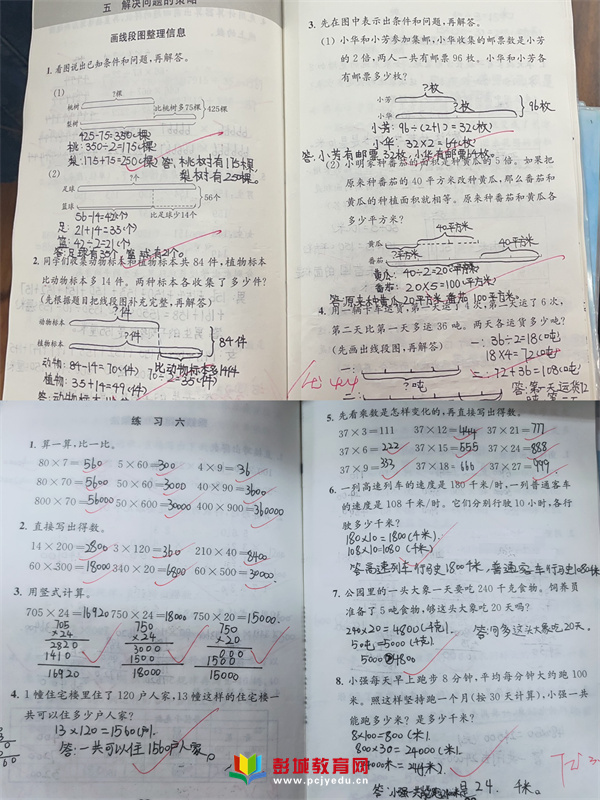 五 解决问题的策略
画线段图整理信息
1. 看图说出已知条件和问题，再解答。
(1)
?棵
桃树
比桃树多75棵
425棵
梨树
425-75=350(棵)
桃:350÷2=175(棵)
梨:175+75=250(棵)
答:桃树有175棵
梨树有250棵。
(2)
足球
56个
篮球
比足球少14个
56-14=42(个)
足:21+14=35(个)
篮:42÷2=21(个)
答:足球有35个,篮球有21个。
2. 同学们收集动物标本和植物标本共84件，植物标本
比动物标本多14件。两种标本各收集了多少件？
(先根据题目把线段图补充完整，再解答)
?件
动物标本
?件
84件
植物标本
比动物标本多14件
动物:84-14=70(件)
70÷2=35(件)
植物:35+14=49(件)
3. 先在图中表示出条件和问题，再解答。
(1) 小华和小芳参加集邮，小华收集的邮票数是小芳
的2倍，两人一共有邮票96枚。小华和小芳各
有邮票多少枚？
?枚
小芳
?枚
96枚
小华
小芳:96÷(2+1)=32(枚)
小华:32×2=64(枚)
答:小芳有邮票32枚,小华有邮票64枚。
(2) 小明家种番茄的面积是种黄瓜的5倍。如果把
原来种番茄的40平方米改种黄瓜，那么番茄和
黄瓜的种植面积就相等。原来种番茄和黄瓜各
多少平方米？
40平方米
黄瓜
?平方米
40平方米
番茄
黄瓜:40÷2=20(平方米)
番茄:20×5=100(平方米)
答:原来种黄瓜20平方米,番茄100平方米。
4. 用一辆卡车运货，第一天运了4次，第二天运了6次，
第二天比第一天多运36吨。两天各运货多少吨？
(先画出线段图，再解答)
一:36÷2=18(吨)
18×4=72(吨)
二:72+36=108(吨)
?吨
答:第一天运货72
练 习 六
1. 算一算，比一比。
80×7=560 5×60=300 4×9=36
80×70=5600 50×60=3000 40×90=3600
800×70=56000 50×600=30000 400×900=360000
2. 直接写出得数。
14×200=2800 3×120=360 210×40=8400
60×300=18000 340×20=6800 60×500=30000
3. 用竖式计算。
705×24=16920 750×24=18000 750×20=15000
705 750 750
×24 ×24 ×20
2820 3000 000
1410 1500 1500
16920 18000 15000
4. 1幢住宅楼里住了120户人家，13幢这样的住宅楼一
共可以住多少户人家？
13×120=1560(户)
答:一共可以住1560户人家。
5. 先看乘数是怎样变化的，再直接写出得数。
37×3=111 37×12=444 37×21=777
37×6=222 37×15=555 37×24=888
37×9=333 37×18=666 37×27=999
6. 一列高速列车的速度是180千米/时，一列普通客车
的速度是108千米/时。它们分别行驶10小时，各行
驶多少千米？
180×10=1800(千米)
108×10=1080(千米)
答:高速列车行驶1800千米,普通客车行驶1080千米
7. 公园里的一头大象一天要吃240千克食物。饲养员
准备了5吨食物，够这头大象吃20天吗？
240×20=4800(千克)
5吨=5000(千克)
5000>4800
答:可够这头大象吃20天。
8. 小强每天早上跑步8分钟，平均每分钟大约跑100
米。照这样坚持跑一个月(按30天计算)，小强一共
能跑多少米？是多少千米？
8×100=800(米)
800×30=24000(米)
彭城教育网
www.pcjyedu.com